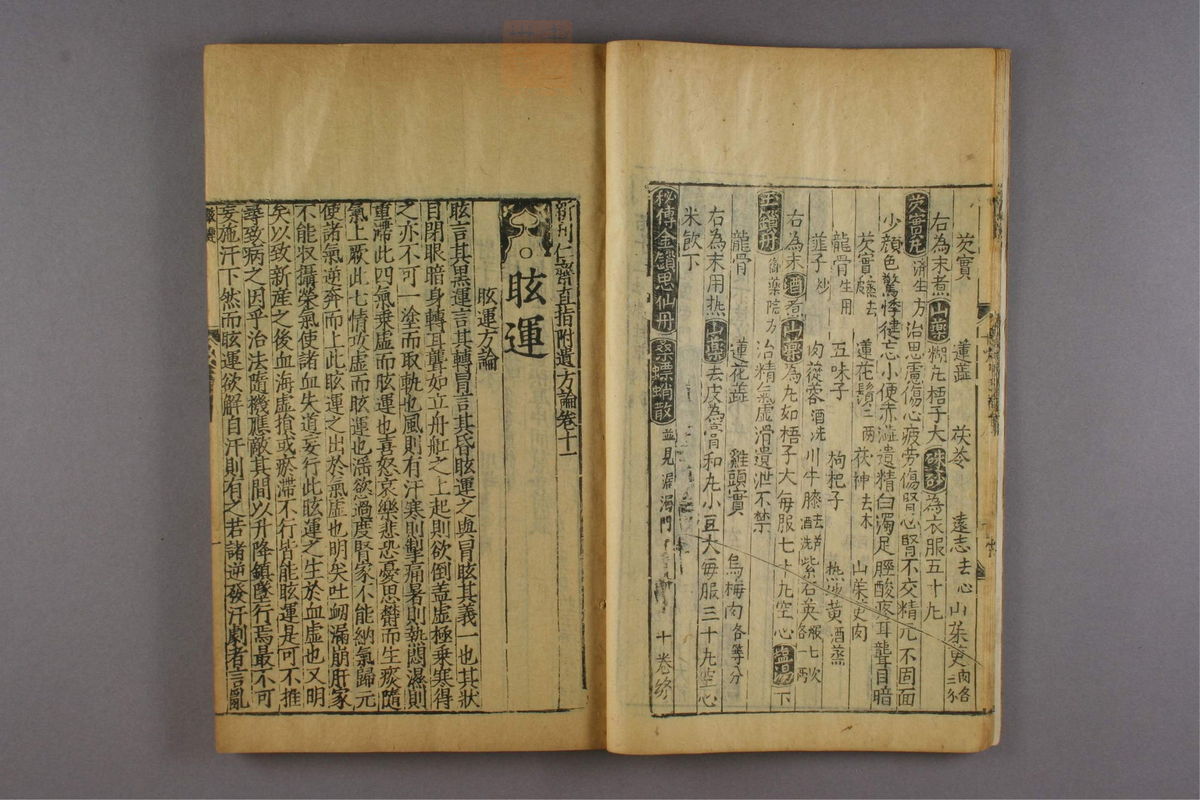 芡實 蓮蘂 茯苓 遠志去心 山茱萸肉各三分
右為末煮山藥糊丸梧子大硃砂為衣服五十丸
芡實丸濟生方治思慮傷心疲勞傷腎心腎不交精元不固面
少顏色驚悸健忘小便赤澁遺精白濁足脛酸疼耳聾目暗
芡實蒸去皮 蓮花鬚二兩 茯神去木 山茱萸肉
龍骨生用 五味子 枸杞子 熟地黄酒蒸
韮子炒 肉蓯蓉酒洗 川牛膝去芦酒洗 紫石英煆七次各一兩
右為末酒煮山藥為丸如梧子大每服七十丸空心塩湯下
玉鎖丹御藥院方 治精氣虛滑遺泄不禁
龍骨 蓮花蘂 雞頭實 烏梅肉各等分
右為末用熱山藥去皮為膏和丸小豆大每服三十丸空心
米飲下
秘傳金鎖思仙丹 桑螵蛸散並見漏濁門 十卷終
新刊仁齋直指附遺方論卷十一
眩運
眩運方論
眩言其黑運言其轉冒言其昏眩運之與冒眩其義一也其狀
目閉眼暗身轉耳聾如立舟舡之上起則欲倒盖虛極乗寒得
之亦不可一塗而取軌也風則有汗寒則掣痛暑則熱悶濕則
重滯此四氣乗虛而眩運也喜怒哀樂悲恐憂思欝而生痰隨
氣上厥此七情攻虛而眩運也淫慾過度腎家不能納氣歸元
使諸氣逆奔而上此眩運之出於氣虛也明矣吐衂漏崩肝家
不能収攝榮氣使諸血失道妄行此眩運之生於血虛也又明
矣以致新産之後血海虛損或瘀滯不行皆能眩運是可不推
尋致病之因乎治法隨機應敵其間以升降鎮墜行焉最不可
妄施汗下然而眩運欲解自汗則有之若諸逆發汗劇者言亂